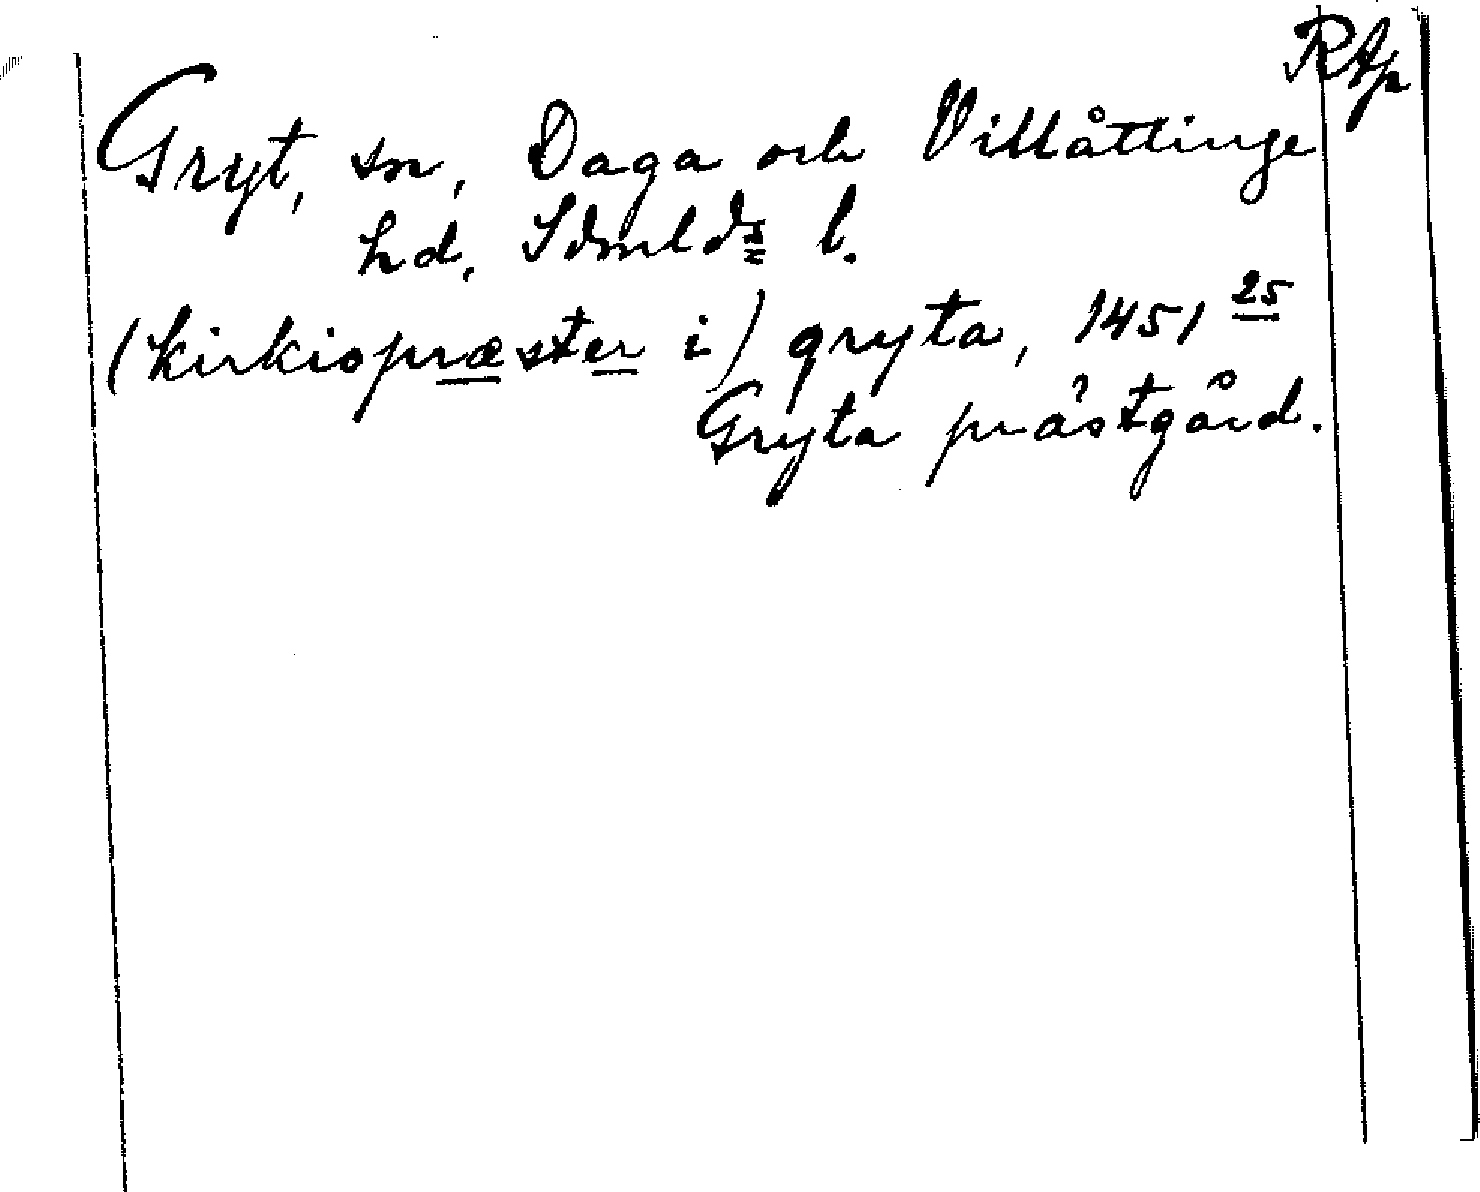 RAp
Gryt, sn, Daga och Villåttinge
hd, Sdmlds l.
(kirkiopræster i) gryta, 1451 25
Gryta prästgård.